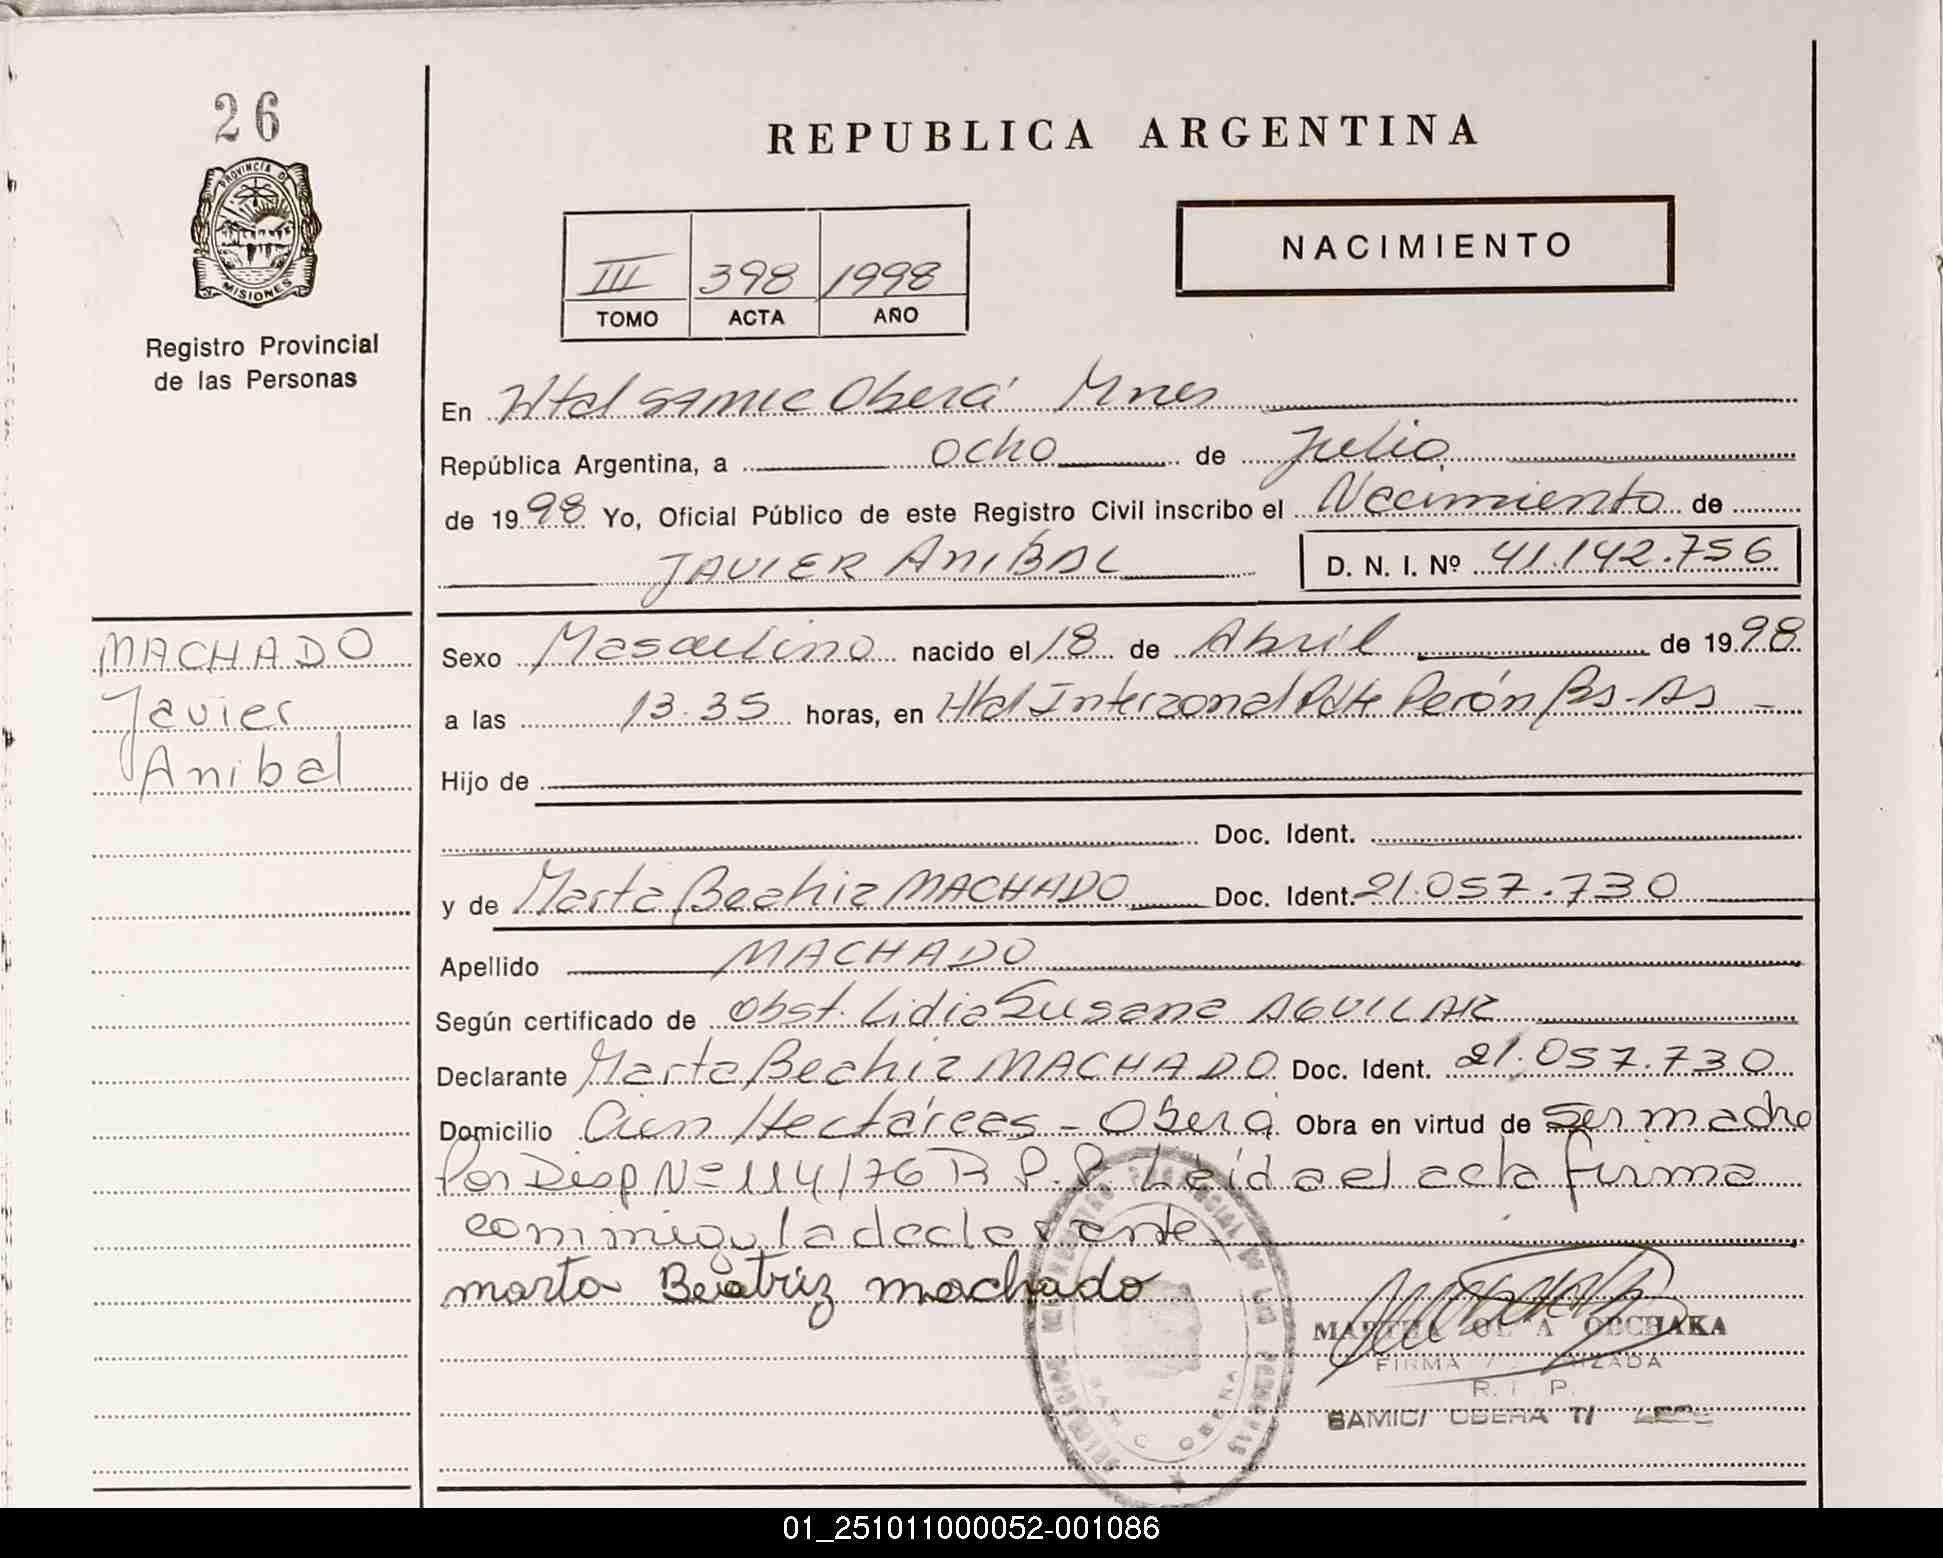 26
PROVINCIA DE
MISIONES
Registro Provincial
de las Personas
REPUBLICA ARGENTINA
III 398 1998
TOMO ACTA AÑO
NACIMIENTO
En Htal SAMIC Oberá Mnes
República Argentina, a ocho de Julio
de 1998 Yo, Oficial Público de este Registro Civil inscribo el Nacimiento de
JAVIER ANIBAL D. N. I. Nº 41.142.756
MACHADO
Javier
Anibal
Sexo Masculino nacido el 18 de Abril de 1998
a las 13.35 horas, en Htal Interzonal Pdte Perón Bs-As
Hijo de
Doc. Ident.
y de Marta Beatriz MACHADO Doc. Ident. 21.057.730
Apellido MACHADO
Según certificado de Obst. Lidia Susana AGUILAR
Declarante Marta Beatriz MACHADO Doc. Ident. 21.057.730
Domicilio Cien Hectáreas - Oberá Obra en virtud de ser madre
Por Disp Nº 114/76 R.P.P. Leída el acta firma
conmigo la declarante.
marta Beatriz machado
MARTHA OLGA OBCHAKA
FIRMA AUTORIZADA
R. P.
SAMIC/ OBERA
01_251011000052-001086